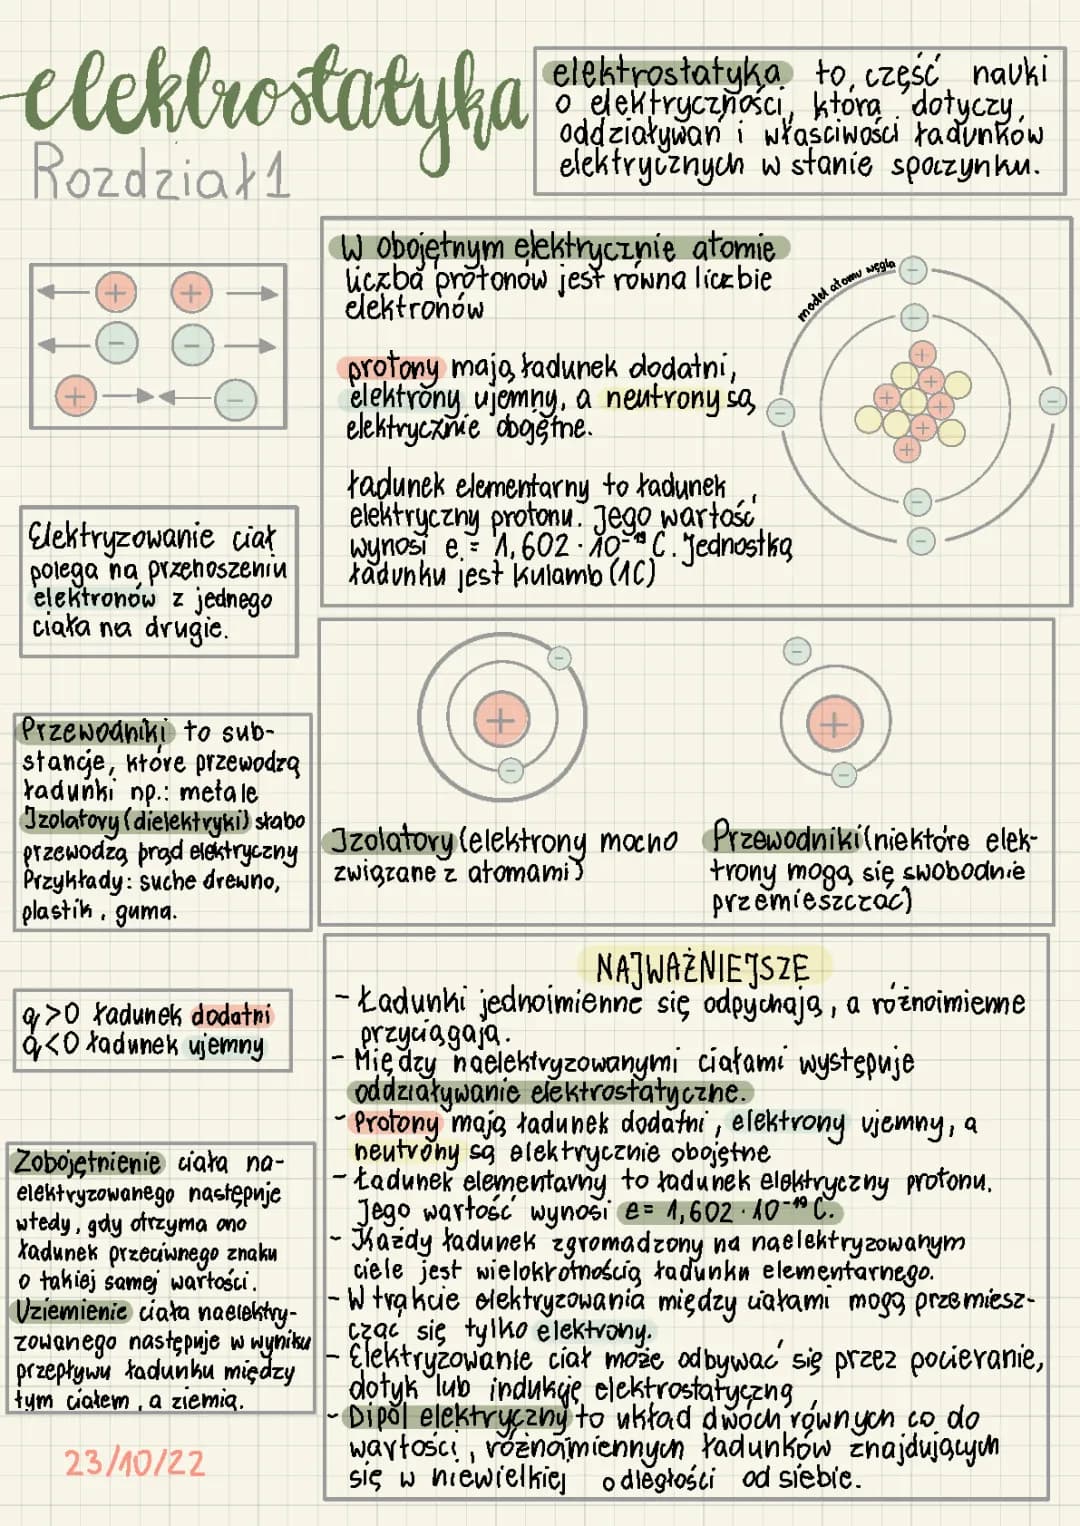 elektrostatyka
Rozdział 1
elektrostatyka to część nauki
o elektryczności, która dotyczy
oddziaływań i właściwości ładunków
elektrycznych w stanie spoczynku.
W obojętnym elektrycznie atomie
liczba protonów jest równa liczbie
elektronów
protony mają ładunek dodatni,
elektrony ujemny, a neutrony są
elektrycznie obojętne.
ładunek elementarny to ładunek
elektryczny protonu. Jego wartość
wynosi e = 1,602 · 10⁻¹⁹ C. Jednostką
ładunku jest kulomb (1C)
model atomu węgla
Elektryzowanie ciał
polega na przenoszeniu
elektronów z jednego
ciała na drugie.
Przewodniki to sub-
stancje, które przewodzą
ładunki np.: metale
Izolatory (dielektryki) słabo
przewodzą prąd elektryczny
Przykłady: suche drewno,
plastik, guma.
Izolatory (elektrony mocno
związane z atomami)
Przewodniki (niektóre elek-
trony mogą się swobodnie
przemieszczać)
q>0 ładunek dodatni
q<0 ładunek ujemny
Zobojętnienie ciała na-
elektryzowanego następuje
wtedy, gdy otrzyma ono
ładunek przeciwnego znaku
o takiej samej wartości.
Uziemienie ciała naelektry-
zowanego następuje w wyniku
przepływu ładunku między
tym ciałem, a ziemią.
23/10/22
NAJWAŻNIEJSZE
- Ładunki jednoimienne się odpychają, a różnoimienne
przyciągają.
- Między naelektryzowanymi ciałami występuje
oddziaływanie elektrostatyczne.
- Protony mają ładunek dodatni, elektrony ujemny, a
neutrony są elektrycznie obojętne
- Ładunek elementarny to ładunek elektryczny protonu.
Jego wartość wynosi e= 1,602 · 10⁻¹⁹ C.
- Każdy ładunek zgromadzony na naelektryzowanym
ciele jest wielokrotnością ładunku elementarnego.
- W trakcie elektryzowania między ciałami mogą przemiesz-
czać się tylko elektrony.
- Elektryzowanie ciał może odbywać się przez pocieranie,
dotyk lub indukcję elektrostatyczną
- Dipol elektryczny to układ dwóch równych co do
wartości, różnoimiennych ładunków znajdujących
się w niewielkiej odległości od siebie.